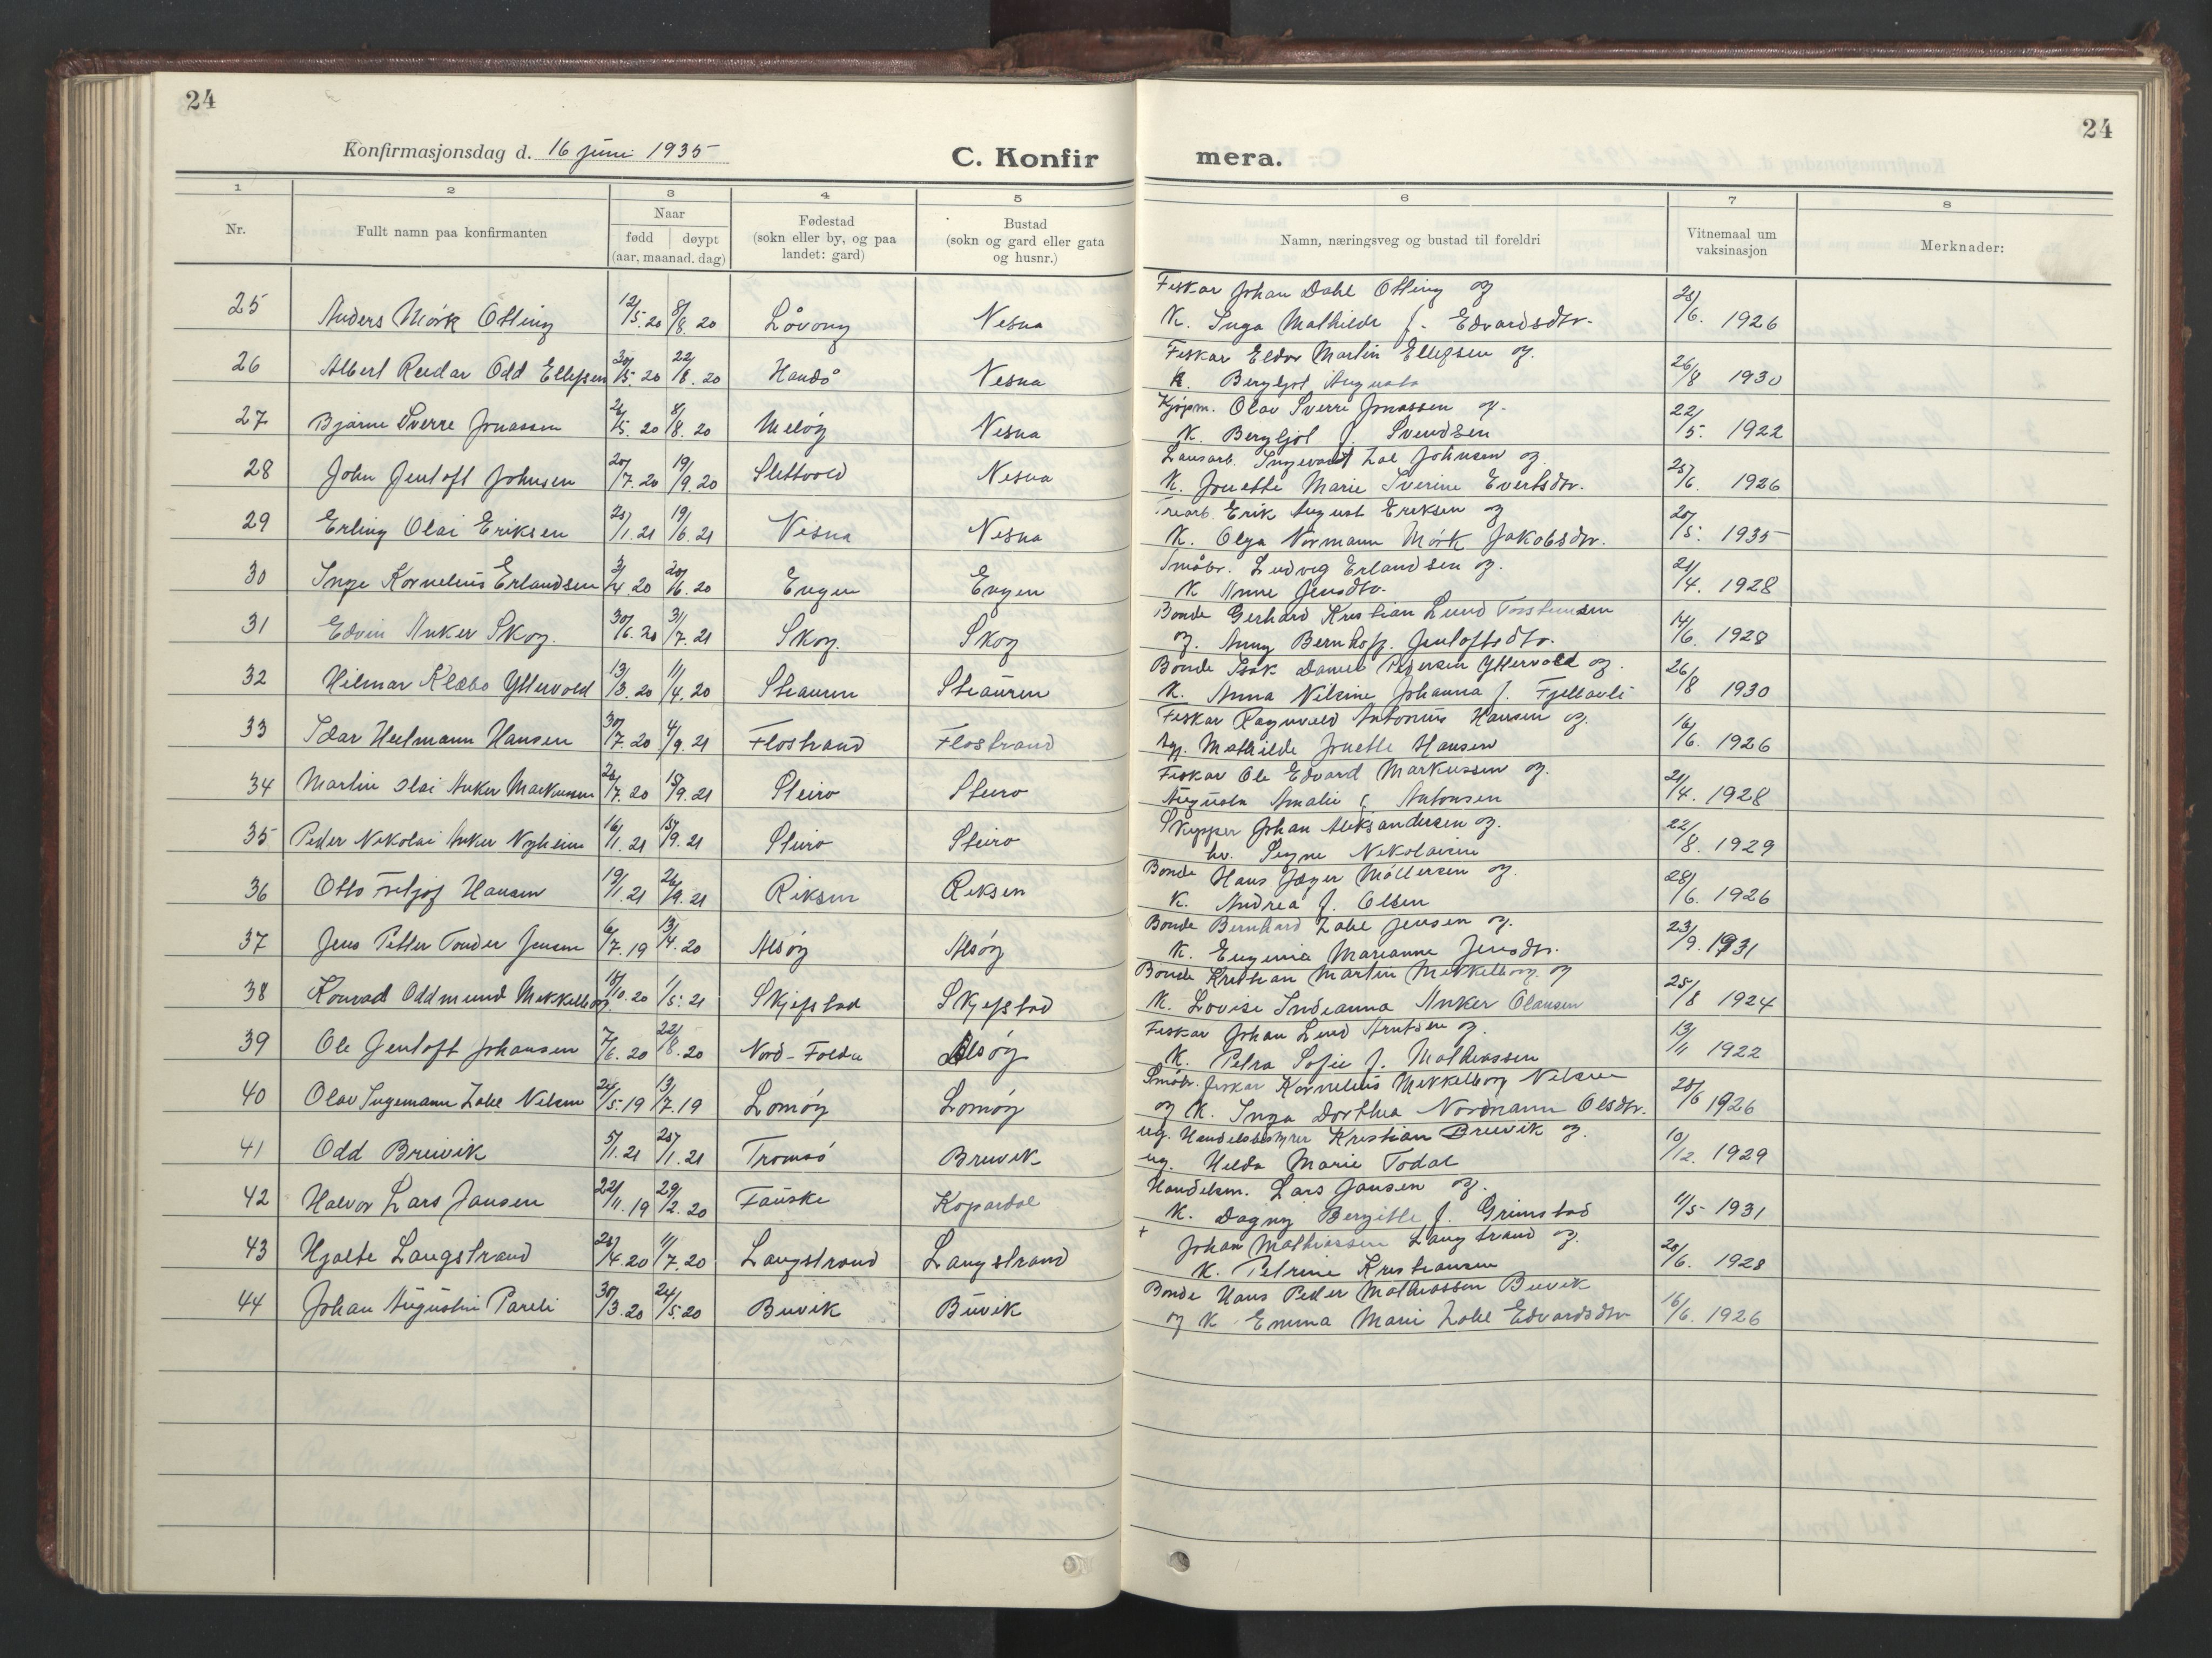 24
24
Konfirmasjonsdag d. 16 juni 1935
C. Konfir
mera.
1 2 3 4 5 6 7 8
Nr.
Fullt namn paa konfirmanten
Naar
fødd døypt
(aar, maanad. dag)
Fødestad
(sokn eller by, og paa
landet: gard)
Bustad
(sokn og gard eller gata
og husnr.)
Namn, næringsveg og bustad til foreldri
Vitnemaal um
vaksinasjon
Merknader:
Fiskar Johan Dahl Otting og
25 Anders Mørk Otting 12/5.20 8/8.20 Løvong Nesna K. Inga Mathilde f. Edvardsdtr. 28/6. 1926
Fiskar Eldor Martin Ellefsen og.
26 Albert Reidar Odd Ellefsen 30/5.20 22/8.20 Handå Nesna K. Bergljot Augusta 26/8 1930
Kjøpm. Olav Sverre Jonassen og.
27 Bjarne Sverre Jonassen /5.20 8/8.20 Meløy Nesna K. Bergljot f. Svendsen 22/5. 1922
Ingevart Zal Johnsen og.
28 John Jentoft Johnsen 20/7.20 19/9.20 Slettvold Nesna K. Jonette Marie Iverine Evertsdtr. 25/6. 1926
Trearb. Erik August Eriksen og
29 Erling Olai Eriksen 25/1.21 19/6.21 Nesna Nesna K. Olga Normann Mørk Jakobsdtr. 20/5. 1935
Småbr. Ludvig Erlandsen og.
30 Inge Kornelius Erlandsen 3/4 20 20/6.20 Engen Engen K Anne Jensdtr. 21/4. 1928
Bonde Gerhard Kristian Lund Torstensen
31 Edvin Anker Skog. 30/6.20 31/7.21 Skog. Skog og. Anny Bernhoff. Jentoftsdtr. 14/6. 1928
Bonde Isak Daniel Pedersen Yttervold og.
32 Hilmar Klæbo Yttervold 13/3.20 11/4.20 Stauren Stauren K. Anna Nilsine Johanna f. Fjellavli 26/8 1930
Fiskar Ragnvald Antonius Hansen og.
33 Idar Helmann Hansen 30/7.20 4/9.21 Flostrand Flostrand Mathilde Jonette Hansen 16/6. 1926
Fiskar Ole Edvard Markussen og.
34 Martin Olai Anker Markussen /7.20 18/9.21 Steiro Steiro Augusta Amalie f. Antonsen 21/4. 1928
Skipper Johan Aleksandersen og.
35 Peder Nikolai Anker Nyheim 16/1.21 18/9.21 Steiro Steiro Signe Nikolaisen 22/8. 1929
Bonde Hans Jæger Møllersen og.
36 Otto Fritjof Hansen 19/1.21 /9.21 Riksen Riksen K. Andrea f. Olsen 28/6. 1926
Bonde Bernhard Zahl Jensen og.
37 Jens Petter Tonder Jensen 6/7.19 13/4.20 Alsøy Alsøy K. Eugenia Marianne Jensdtr. 23/9. 1931
Bonde Kristian Martin Mikkelborg og
38 Konrad Oddmund Mikkelborg 18/10.20 1/5.21 Skjefstad Skjefstad K. Lovise Indianna Anker Olausen 25/8 1924
Fiskar Johan Lund Arntsen og.
39 Ole Jentoft Johansen 7/6.20 22/8.20 Nord-Folda Alsøy K. Petra Sofie f. Mathiassen 13/11 1922
Småbr. fiskar Kornelius Mikkelborg Nilsen
40 Olav Ingemann Zahl Nilsen 24/5.19 13/7.19 Lomøy Lomøy og K. Inga Dorthea Nordmann Olsdtr. 28/6 1926
ug. Handelsbestyrer Kristian Breivik og.
41 Odd Breivik 5/1.21 25/1.21 Tromsø Breivik ug. Hilda Marie Todal 10/12. 1929
Handelsm. Lars Jansen og.
42 Halvor Lars Jansen 22/11.19 29/2.20 Fauske Kopardal K. Dagny Bergitte f. Grimstad 11/5 1931
+ Johan Mathiassen Langstrand og.
43 Hjalte Langstrand 28/4.20 11/7.20 Langstrand Langstrand K. Petrine Kristiansen 28/6. 1928
Bonde Hans Peder Mathiassen Buvik
44 Johan Augustin Pareli 30/3.20 24/5.20 Buvik Buvik og K Emma Marie Zahl Edvardsdtr 16/6. 1926